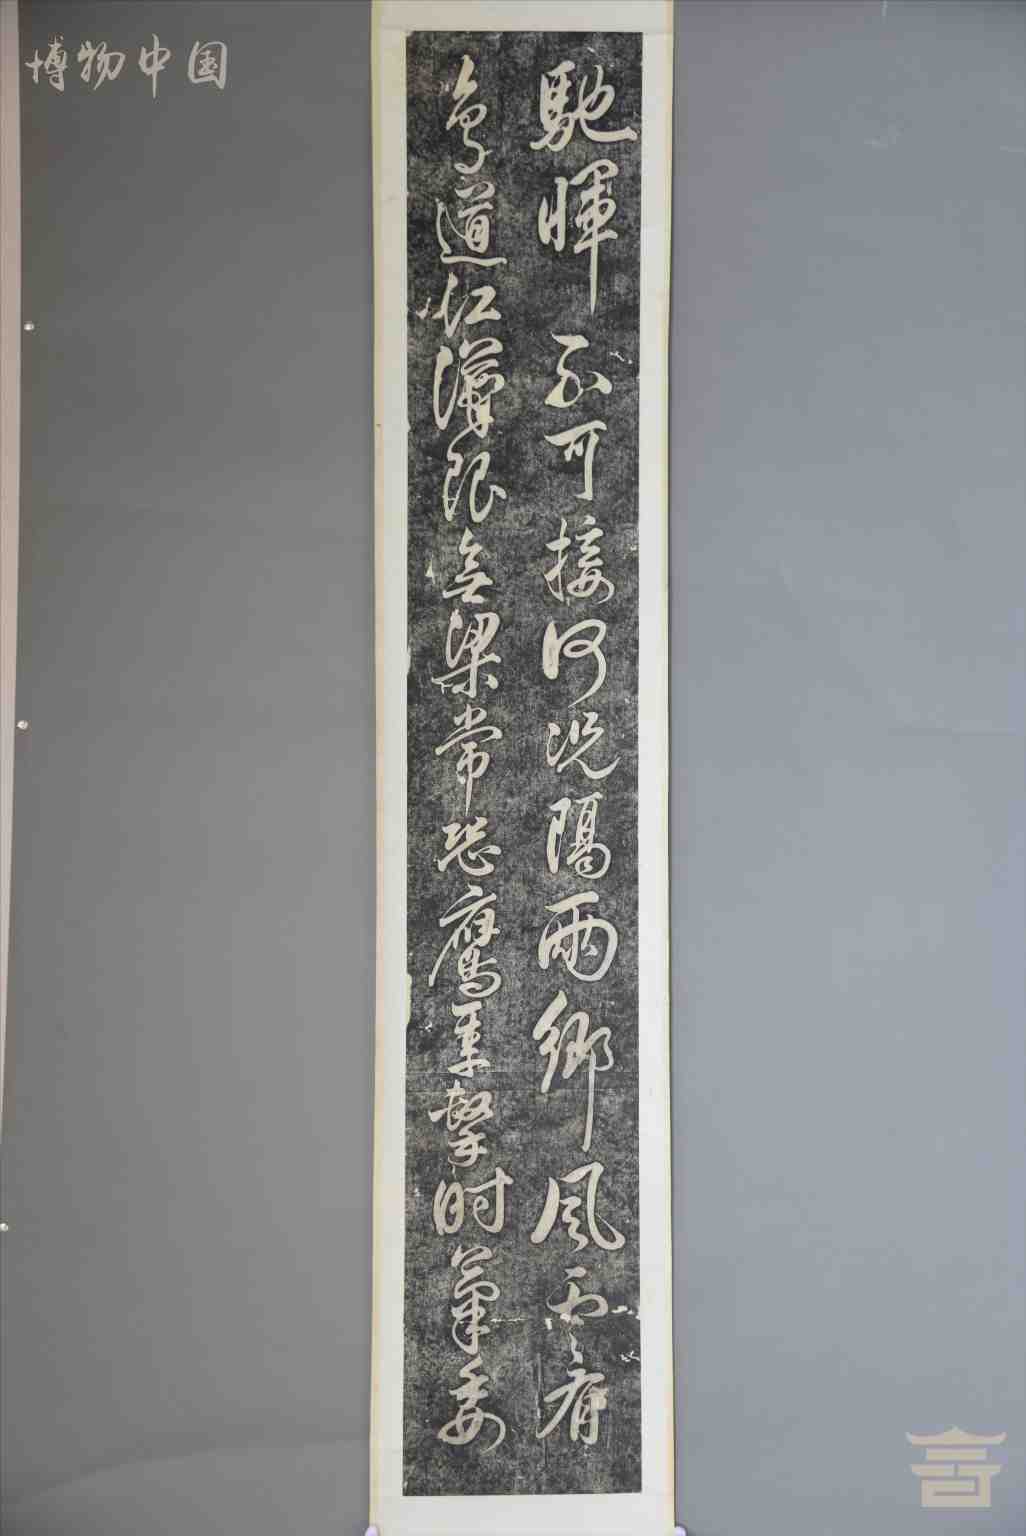 博物中国
馳暉不可接何況隔兩鄉風雲有
鳥道江漢限無梁常恐鷹隼擊時菊委